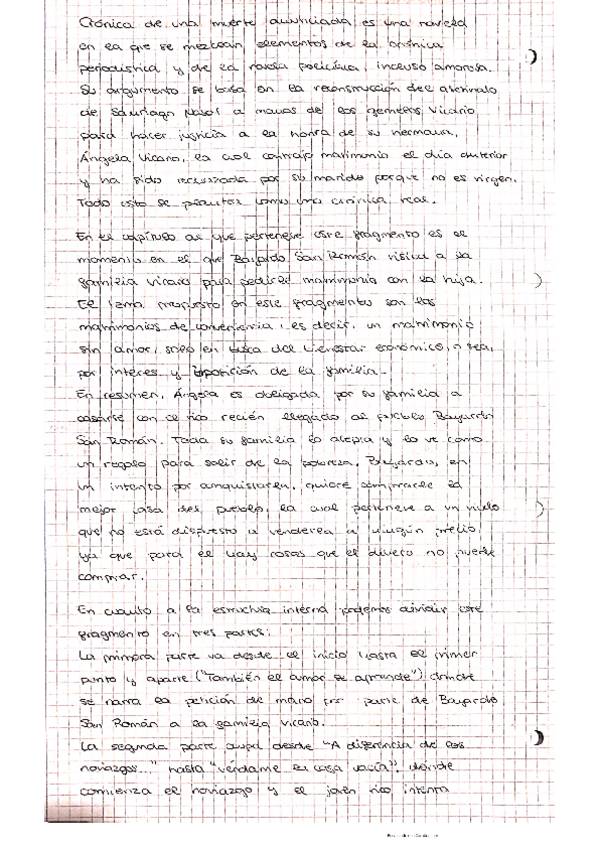 Crónica de una muerte anunciada es una novela
en la que se mezclan elementos de la crónica
periodística y de la novela policíaca, incluso amorosa.
Su argumento se basa en la reconstrucción del asesinato
de Santiago Nasar a manos de los gemelos Vicario
para hacer justicia a la honra de su hermana,
Ángela Vicario, la cual contrajo matrimonio el día anterior
y ha sido rechazada por su marido porque no es virgen.
Todo esto se presenta como una crónica real.
En el capítulo al que pertenece este fragmento es el
momento en el que Bayardo San Román visita a la
familia Vicario para pedirle matrimonio con la hija.
El tema propuesto en este fragmento son los
matrimonios de conveniencia, es decir, un matrimonio
sin amor, solo en busca del bienestar económico, o sea,
por interés y imposición de la familia.
En resumen, Ángela es obligada por su familia a
casarse con el rico recién llegado al pueblo Bayardo
San Román. Toda su familia lo acepta y lo ve como
un regalo para salir de la pobreza. Bayardo, en
un intento por conquistarla, quiere comprarle la
mejor casa del pueblo, la cual pertenece a un viudo
que no está dispuesto a venderla a ningún precio
ya que para él hay cosas que el dinero no puede
comprar.
En cuanto a la estructura interna podemos dividir este
fragmento en tres partes:
La primera parte va desde el inicio hasta el primer
punto y aparte ("También el amor se aprende") donde
se narra la petición de mano por parte de Bayardo
San Román a la familia Vicario.
La segunda parte desde "A diferencia de los
noviazgos..." hasta "véndame la casa vacía", donde
comienza el noviazgo y el joven rico intenta